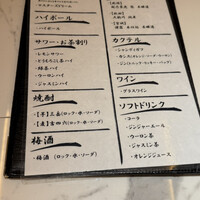 ハイボール
・ハイボール
サワー・お茶割り
・レモンサワー
・とうもろこし茶ハイ
・緑茶ハイ
・ウーロンハイ
・ジャスミンハイ
焼酎
・【芋】三岳(ロック・水・ソーダ)
・【麦】吉四六(ロック・水・ソーダ)
梅酒
・梅酒(ロック・水・ソーダ)
カクテル
・シャンディガフ
ワイン
・グラスワイン
ソフトドリンク
・コーラ
・ジンジャーエール
・ウーロン茶
・ジャスミン茶
・オレンジジュース